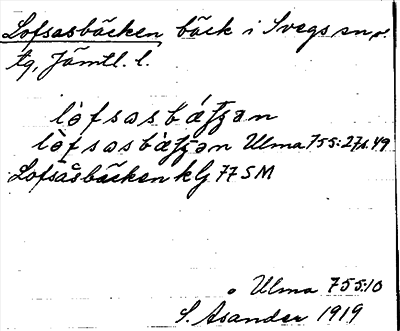 Lofsasbäcken bäck i Svegs sn o.
tg, Jämtl. l.
lòfsasbáʄʒən
lòfsasbàʄʒən Ulma 755:27 s. 49
Lofsåsbäcken kg 77 SM
Ulma 755:10
S. Asander 1919